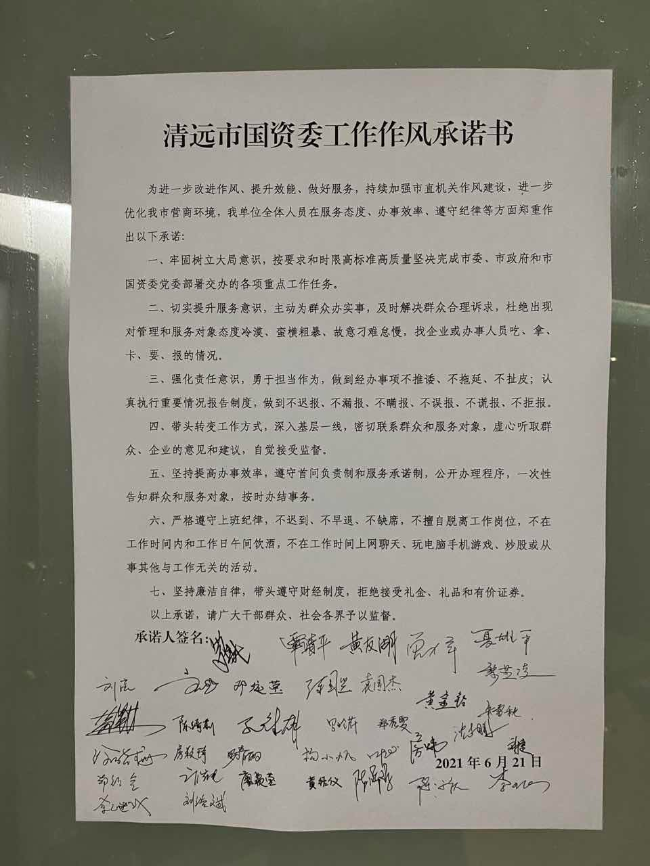 清远市国资委工作作风承诺书
为进一步改进作风、提升效能、做好服务，持续加强市直机关作风建设，进一步
优化我市营商环境，我单位全体人员在服务态度、办事效率、遵守纪律等方面郑重作
出以下承诺：
一、牢固树立大局意识，按要求和时限高标准高质量坚决完成市委、市政府和市
国资委党委部署交办的各项重点工作任务。
二、切实提升服务意识，主动为群众办实事，及时解决群众合理诉求，杜绝出现
对管理和服务对象态度冷漠、蛮横粗暴、故意刁难怠慢，找企业或办事人员吃、拿、
卡、要、报的情况。
三、强化责任意识，勇于担当作为，做到经办事项不推诿、不拖延、不扯皮；认
真执行重要情况报告制度，做到不迟报、不漏报、不瞒报、不误报、不谎报、不拒报。
四、带头转变工作方式，深入基层一线，密切联系群众和服务对象，虚心听取群
众、企业的意见和建议，自觉接受监督。
五、坚持提高办事效率，遵守首问负责制和服务承诺制，公开办理程序，一次性
告知群众和服务对象，按时办结事务。
六、严格遵守上班纪律，不迟到、不早退、不缺席，不擅自脱离工作岗位，不在
工作时间内和工作日午间饮酒，不在工作时间上网聊天、玩电脑手机游戏、炒股或从
事其他与工作无关的活动。
七、坚持廉洁自律，带头遵守财经制度，拒绝接受礼金、礼品和有价证券。
以上承诺，请广大干部群众、社会各界予以监督。
承诺人签名：
黄友明
袁国杰
2021 年 6 月 21 日